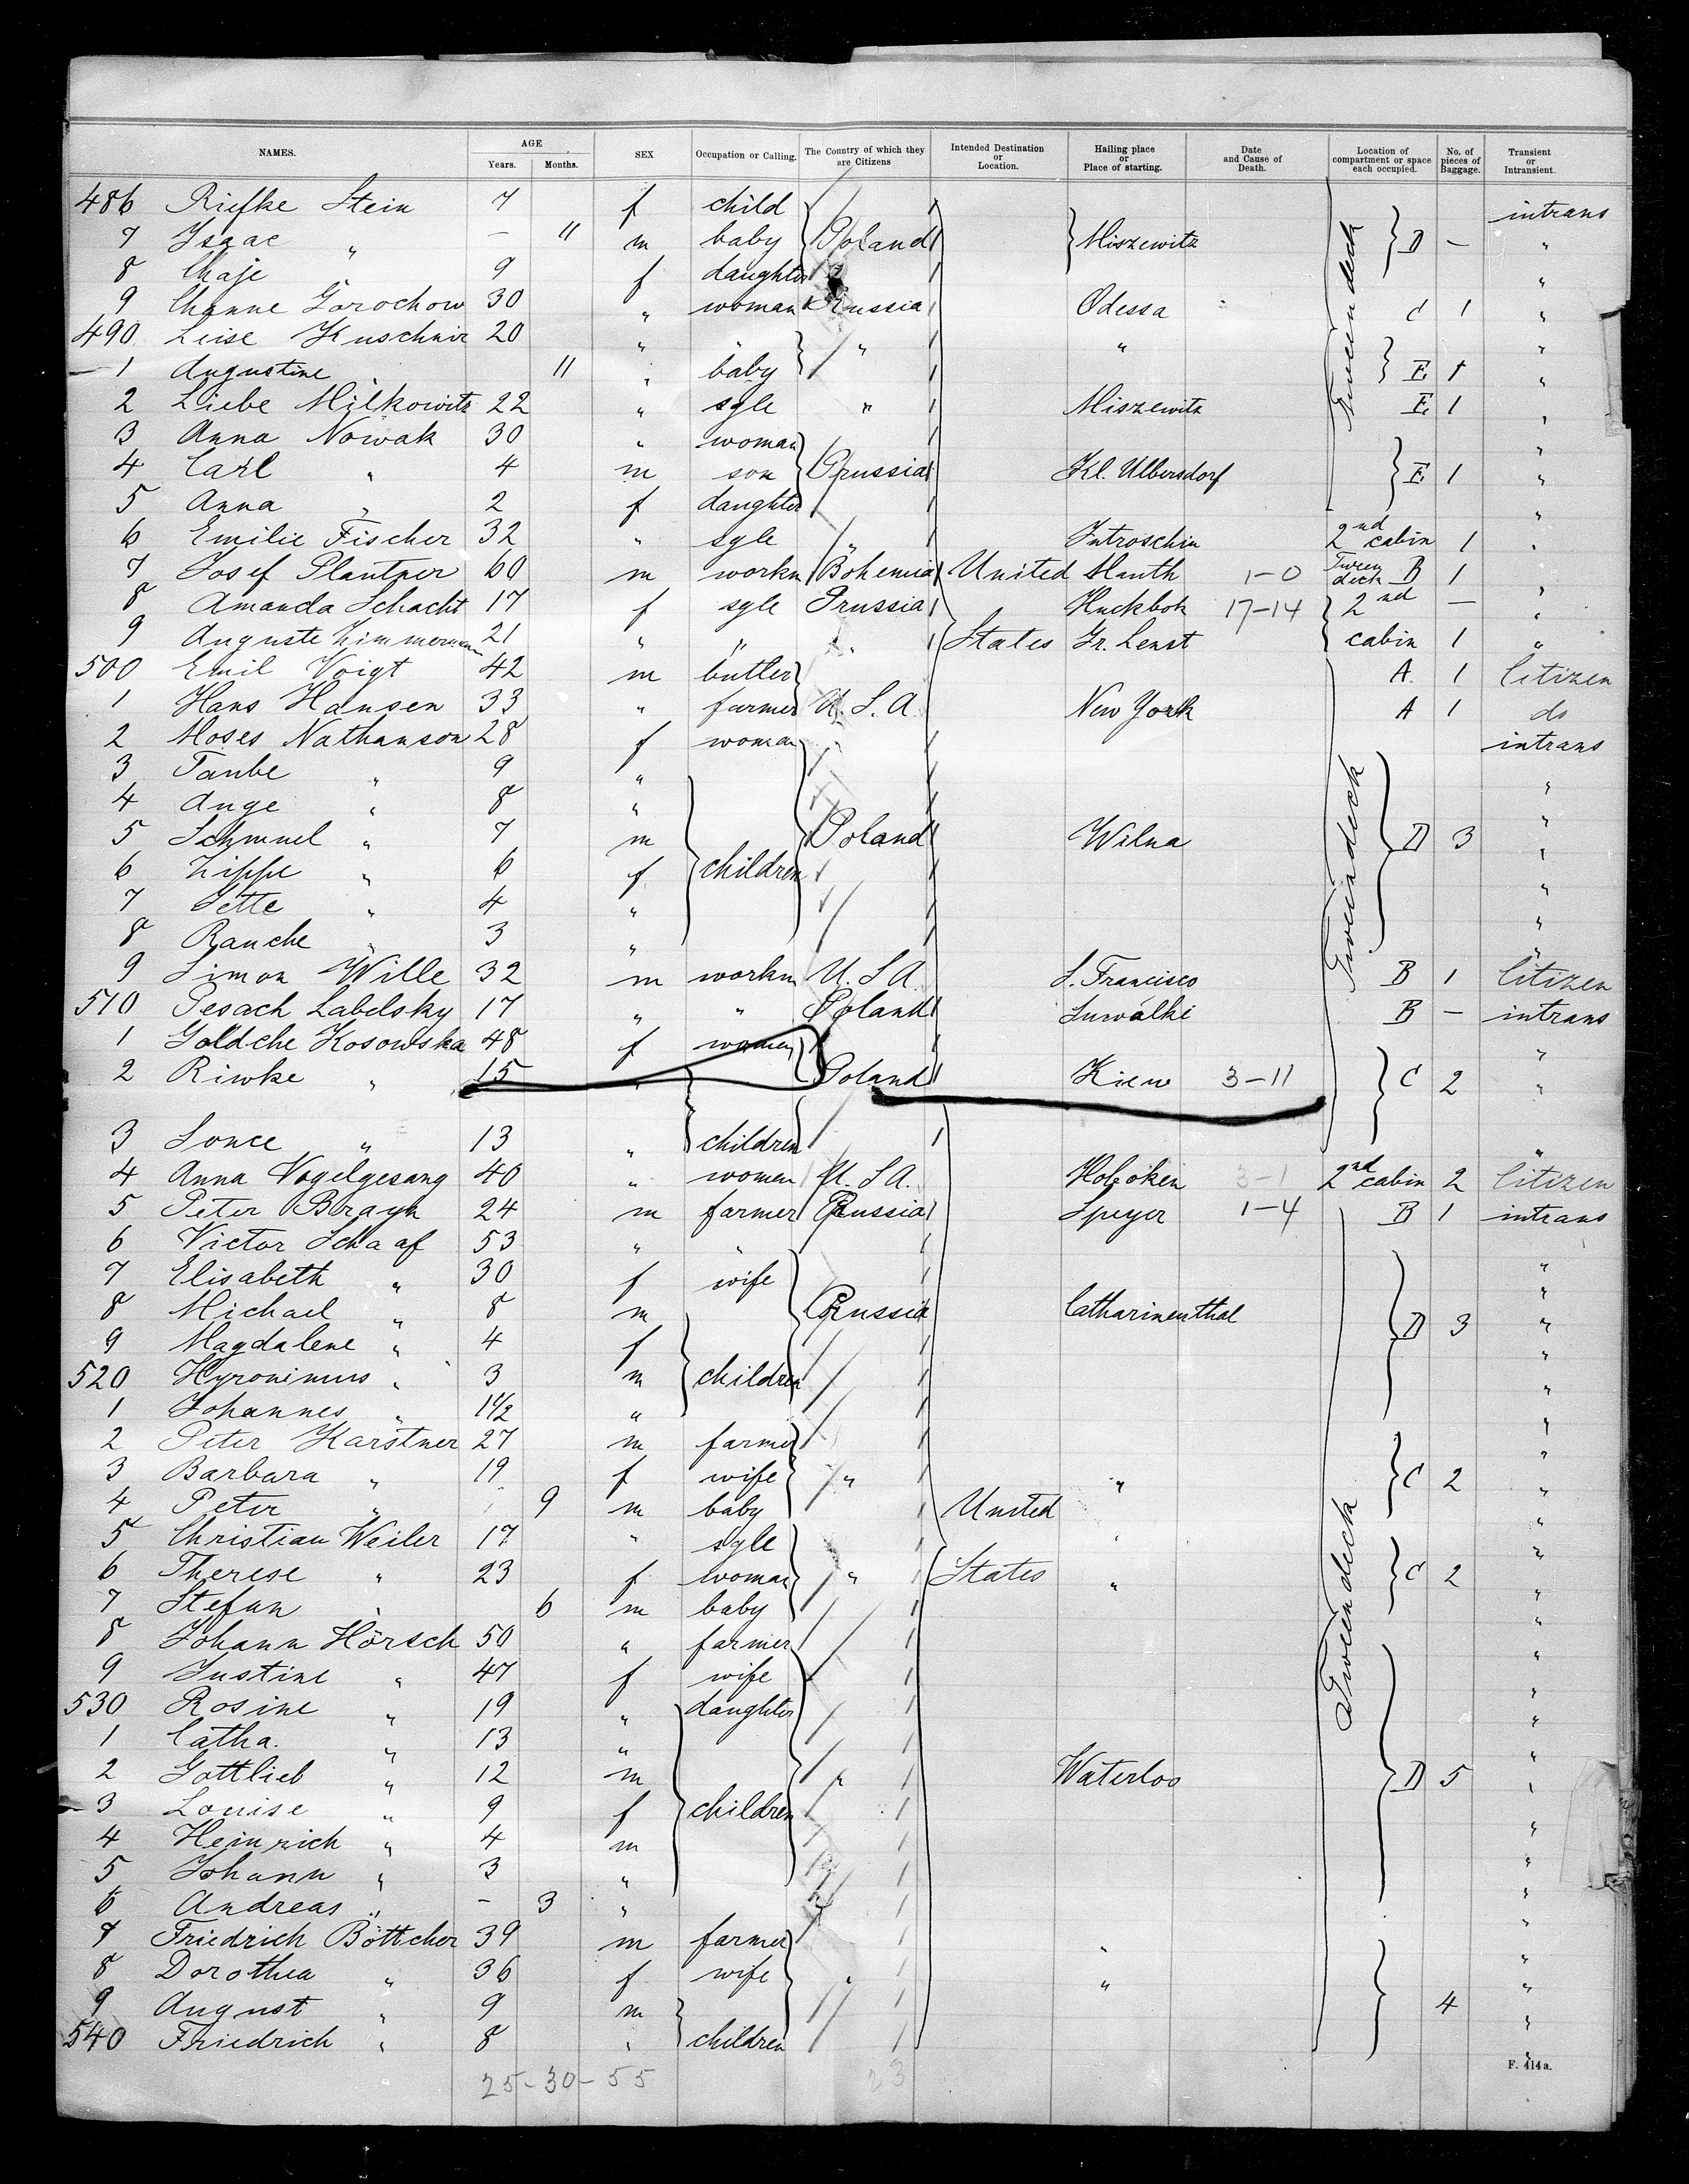 NAMES. AGE Years. Months. SEX Occupation or Calling. The Country of which they are Citizens Intended Destination or Location. Hailing place or Place of starting. Date and Cause of Death. Location of compartment or space each occupied. No. of pieces of Baggage. Transient or Intransient.
486 Riefke Stein 7 f child intrans
7 Isaac " – 11 m baby Poland Miszewitz D – "
8 Chaje " 9 f daughter "
9 Channe Gorochow 30 " woman Russia Odessa C 1 "
490 Leise Kuschnir 20 " " " " "
1 Augustine " 11 " baby E 1 "
2 Liebe Milkowitz 22 " sgle " Miszewitz E 1 "
3 Anna Nowak 30 " woman "
4 Carl " 4 m son Prussia Kl. Ulbersdorf E 1 "
5 Anna " 2 f daughter "
6 Emilie Fischer 32 " sgle " Jutroschin 2nd cabin 1 "
7 Josef Plantner 60 m workm Bohemia United Mauth 1–0 Tween deck B 1 "
8 Amanda Schacht 17 f sgle Prussia Huckbok 17–14 2nd – "
9 Auguste Zimmermann 21 " " " States Gr. Lenst cabin 1 "
500 Emil Voigt 42 m butler A. 1 Citizen
1 Hans Hansen 33 " farmer U.S.A. New York A 1 do
2 Moses Nathanson 28 f woman " intrans
3 Taube " 9 " "
4 Auge " 8 " "
5 Schmuel " 7 m Poland Wilna D 3 "
6 Zippe " 6 f children "
7 Sette " 4 " "
8 Ranche " 3 " "
9 Simon Wille 32 m workm U.S.A. S. Francisco B 1 Citizen
510 Pesach Labelsky 17 " " Poland Suwalki B – intrans
1 Goldche Kosowska 48 f women "
2 Riwke " 15 " Poland Kiew 3–11 C 2 "
3 Sonce " 13 " children "
4 Anna Vogelgesang 40 " women U.S.A. Hoboken 3–1 2nd cabin 2 Citizen
5 Peter Brayn 24 m farmer Russia Speyer 1–4 B 1 intrans
6 Victor Schaaf 53 " " "
7 Elisabeth " 30 f wife "
8 Michael " 8 m Russia Catharinenthal D 3 "
9 Magdalene " 4 f "
520 Hyronimus " 3 m children "
1 Johannes " 1½ " "
2 Peter Karstner 27 m farmer "
3 Barbara " 19 f wife " " C 2 "
4 Peter " 9 m baby United "
5 Christian Weiler 17 " sgle " "
6 Therese " 23 f woman " States " C 2 "
7 Stefan " 6 m baby "
8 Johann Hörsch 50 " farmer "
9 Justine " 47 f wife "
530 Rosine " 19 " daughter "
1 Catha. " 13 " "
2 Gottlieb " 12 m " Waterloo D 5 "
3 Louise " 9 f children "
4 Heinrich " 4 m "
5 Johann " 3 " "
6 Andreas " – 3 " "
7 Friedrich Böttcher 39 m farmer " "
8 Dorothea " 36 f wife " " "
9 August " 9 m 4 "
540 Friedrich " 8 " children "
Tweendeck
Tweendeck
Tweendeck
25–30–55 23
F. 414a.